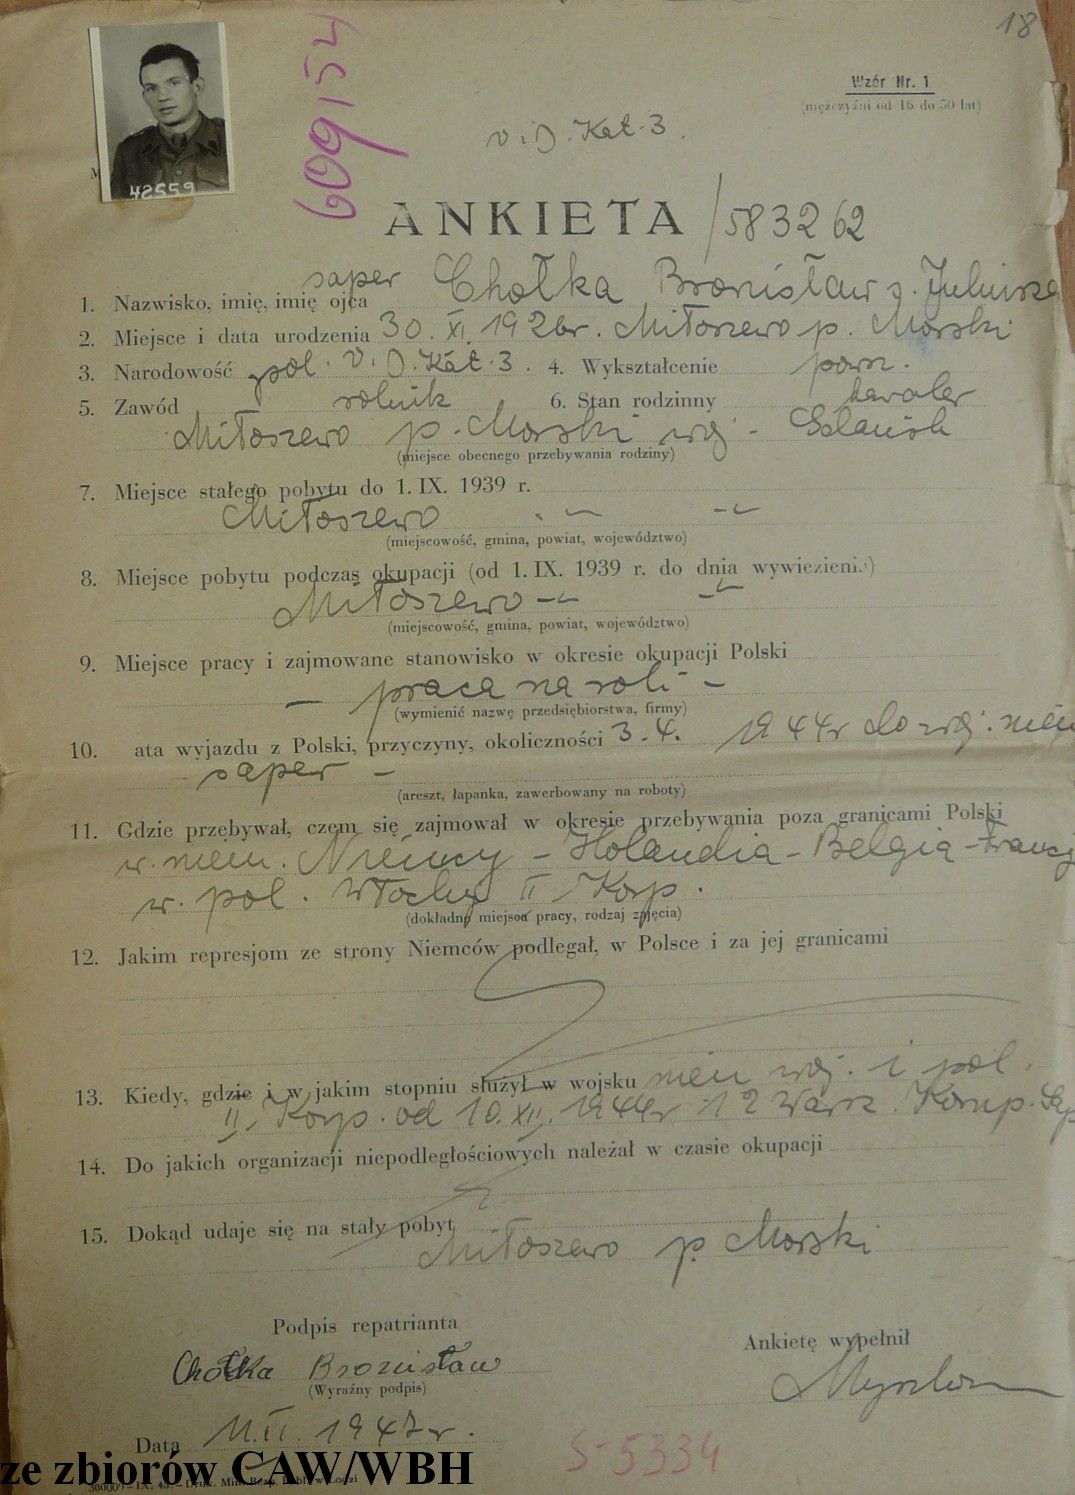 18
609154
42559
Wzór Nr. 1
(mężczyźni od 16 do 50 lat)
v. D. Kat. 3.
ANKIETA / 583262
saper
1. Nazwisko, imię, imię ojca Chołka Bronisław s. Juliusza
2. Miejsce i data urodzenia 30. XI. 1926r. Miłoszewo p. Morski
3. Narodowość pol. V. D. Kat. 3. 4. Wykształcenie pow.
5. Zawód rolnik 6. Stan rodzinny kawaler
Miłoszewo p. Morski woj - Gdańsk
(miejsce obecnego przebywania rodziny)
7. Miejsce stałego pobytu do 1. IX. 1939 r.
Miłoszewo
(miejscowość, gmina, powiat, województwo)
8. Miejsce pobytu podczas okupacji (od 1. IX. 1939 r. do dnia wywiezienia)
Miłoszewo
(miejscowość, gmina, powiat, województwo)
9. Miejsce pracy i zajmowane stanowisko w okresie okupacji Polski
- praca na roli -
(wymienić nazwę przedsiębiorstwa, firmy)
10. ata wyjazdu z Polski, przyczyny, okoliczności 3. 4. 1944r do woj. niem
- saper -
(areszt, łapanka, zawerbowany na roboty)
11. Gdzie przebywał, czem się zajmował w okresie przebywania poza granicami Polski
w. niem. Niemcy - Holandia - Belgia - Francj
w. pol. Włochy II Korp.
(dokładne miejsca pracy, rodzaj zajęcia)
12. Jakim represjom ze strony Niemców podlegał, w Polsce i za jej granicami
13. Kiedy, gdzie i w jakim stopniu służył w wojsku niem woj. i pol.
II. Korp. od 10. XII. 1944r 12 Warsz. Komp. Sap
14. Do jakich organizacji niepodległościowych należał w czasie okupacji
15. Dokąd udaje się na stały pobyt
Miłoszewo p. Morski
Podpis repatrianta
Chołka Bronisław
(Wyraźny podpis)
Ankietę wypełnił
Data 11. II. 1947r.
S-5334
ze zbiorów CAW/WBH